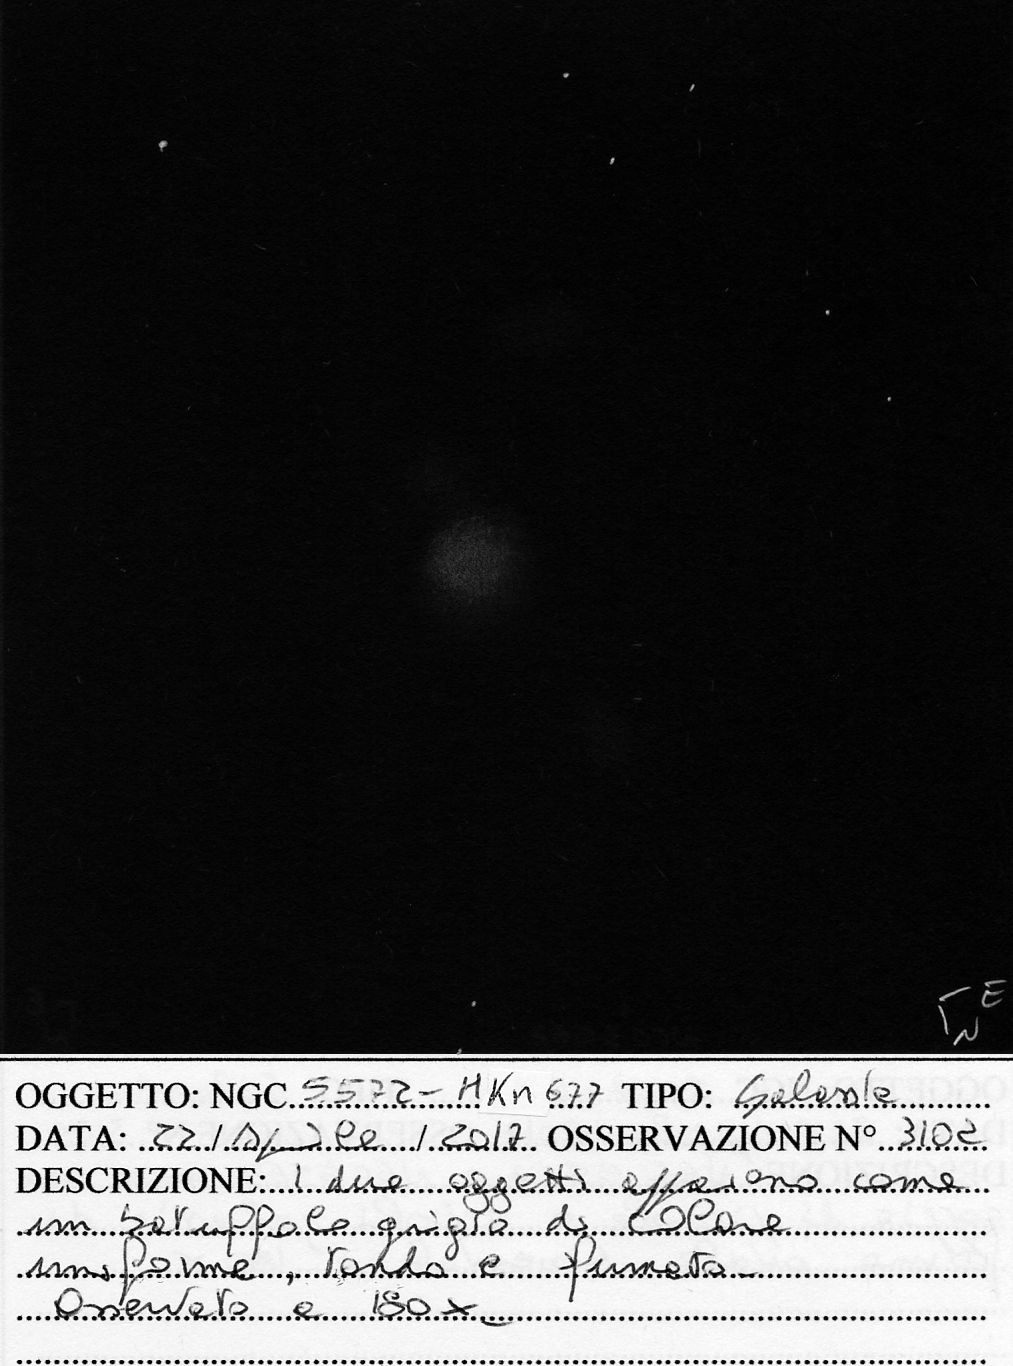 E
N
OGGETTO: NGC 5572 - MKn 677 TIPO: Galassie
DATA: 22 / Aprile / 2017 OSSERVAZIONE N° 3102
DESCRIZIONE: I due oggetti appaiono come
un batuffolo grigio di colore
uniforme, tondo e fumoso
Osservato a 180 x